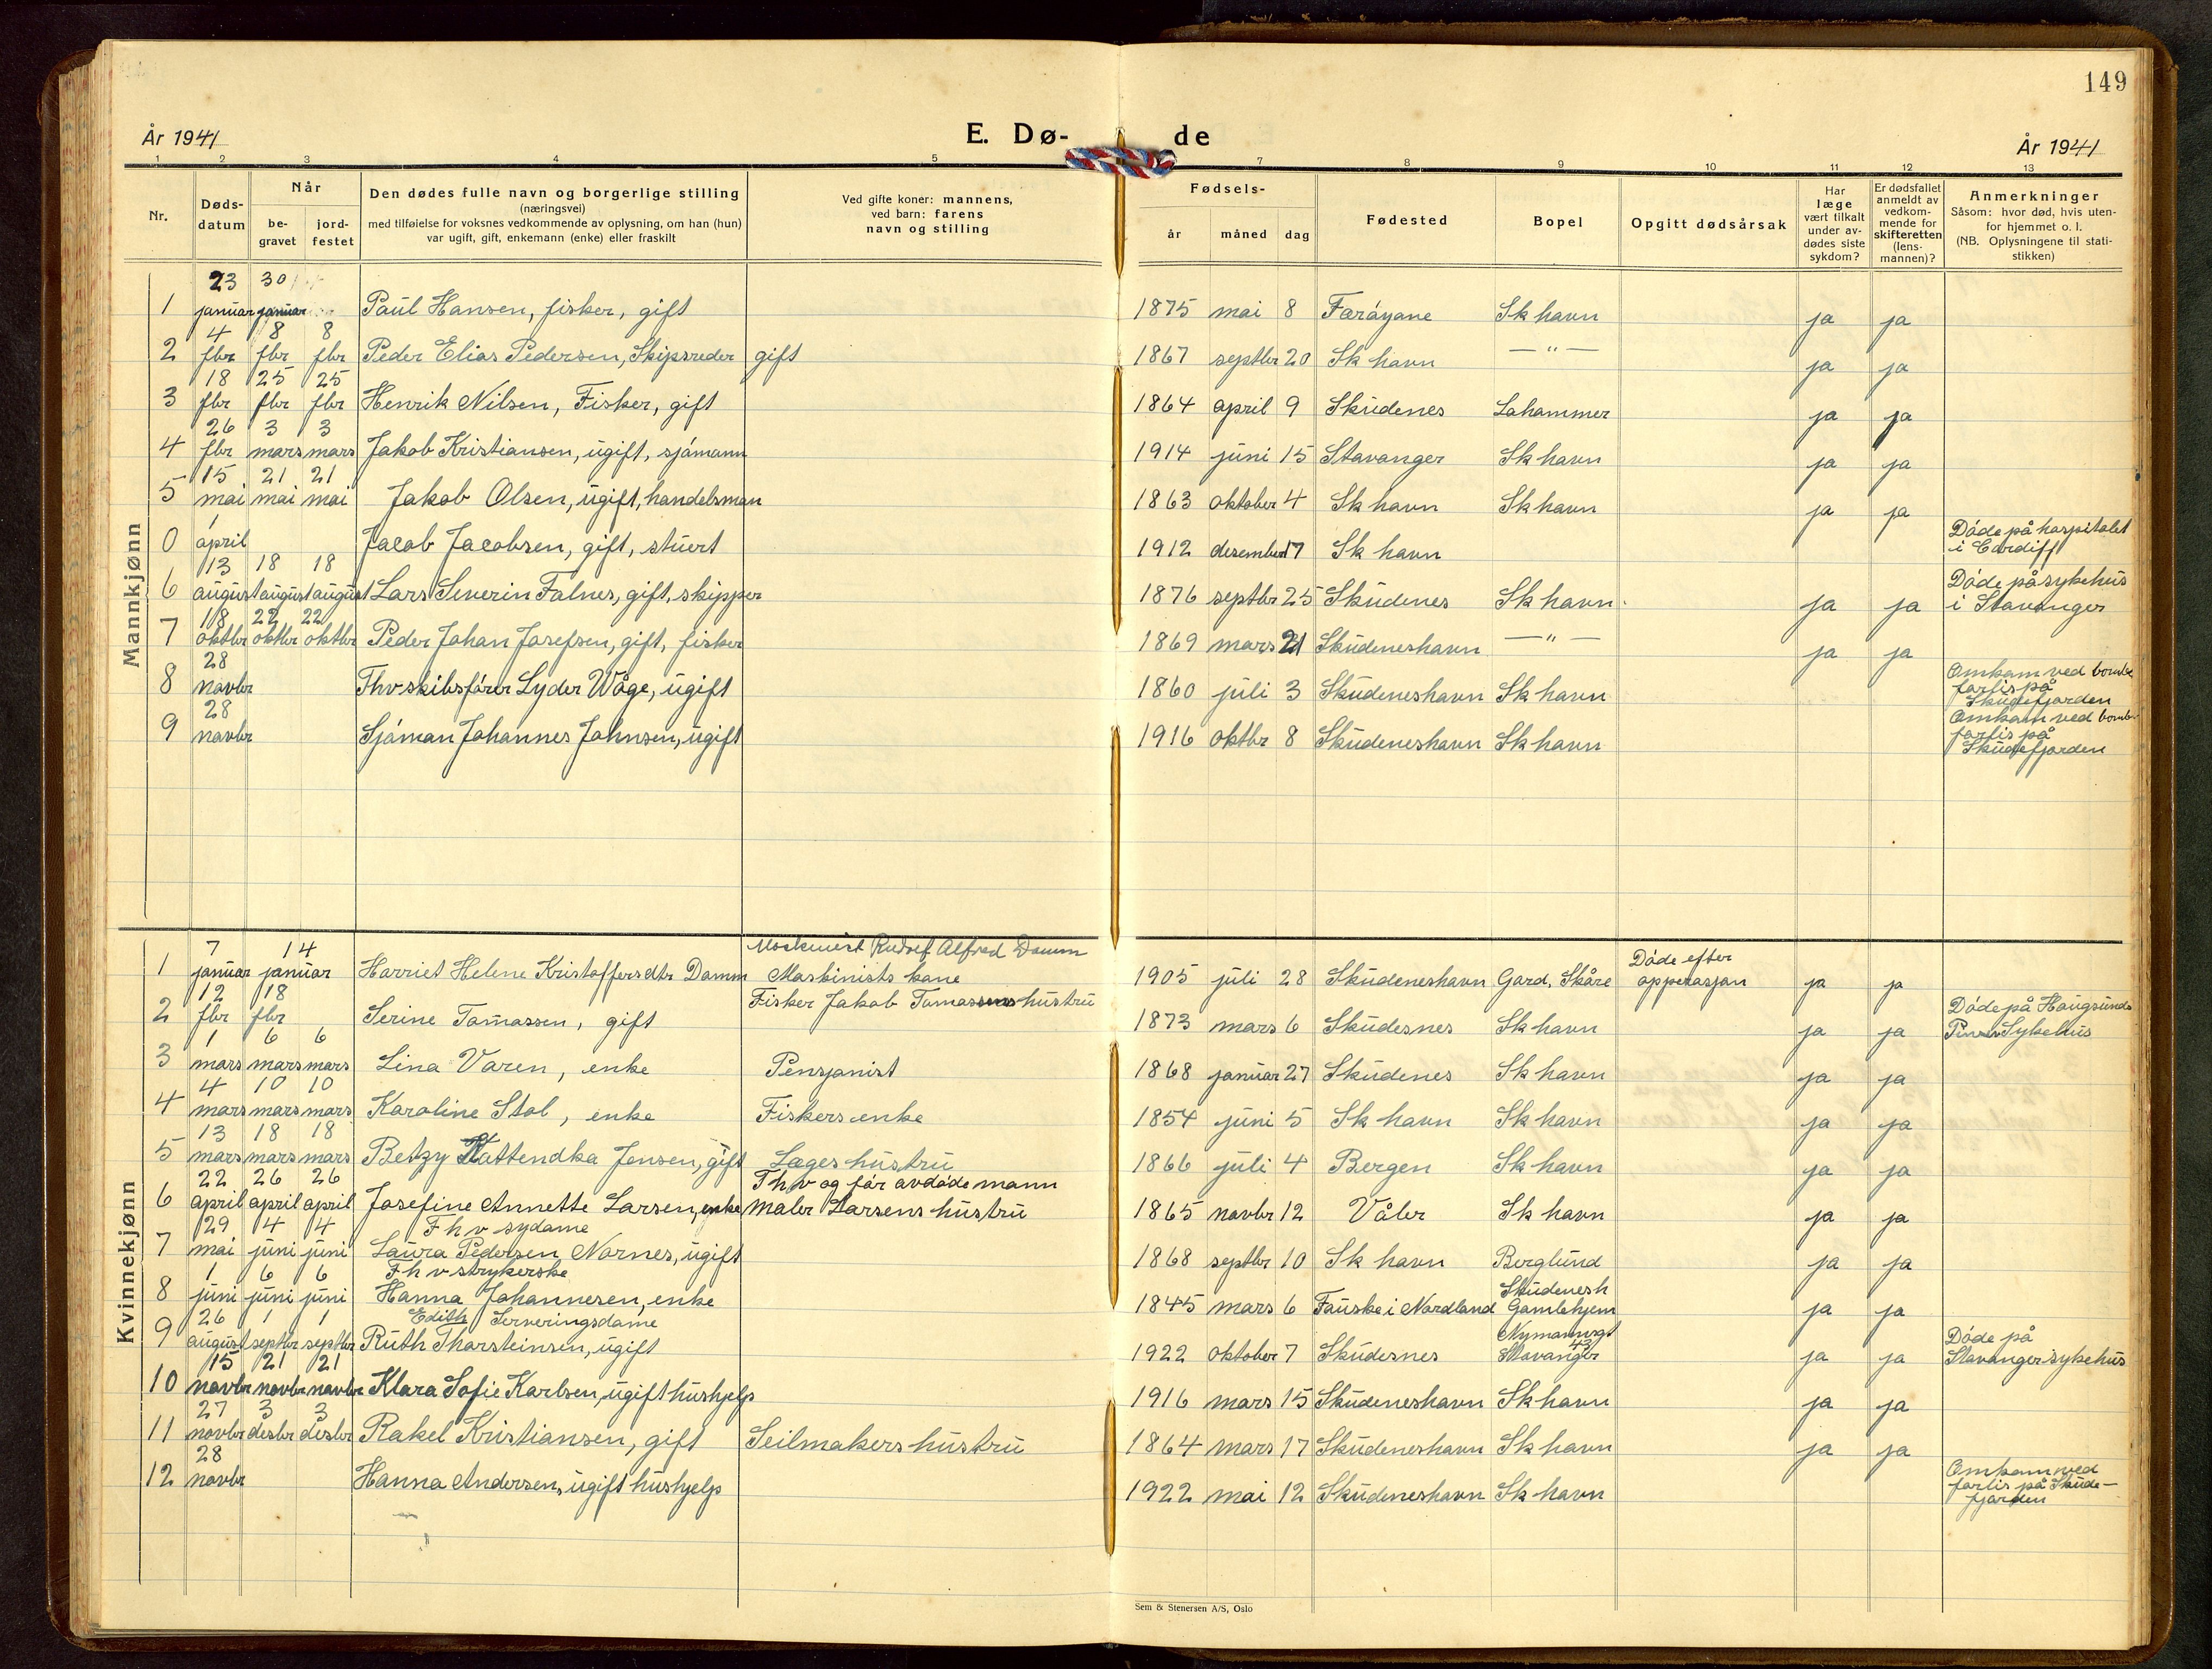 149
År 1941
E. Dø- de
År 1941
1 2 3 4 5 7 8 9 10 11 12 13
Nr.
Døds-
datum
Når
be-
gravet
jord-
festet
Den dødes fulle navn og borgerlige stilling
(næringsvei)
med tilføielse for voksnes vedkommende av oplysning, om han (hun)
var ugift, gift, enkemann (enke) eller fraskilt
Ved gifte koner: mannens,
ved barn: farens
navn og stilling
Fødsels-
år måned dag
Fødested
Bopel
Opgitt dødsårsak
Har
læge
vært tilkalt
under av-
dødes siste
sykdom?
Er dødsfallet
anmeldt av
vedkom-
mende for
skifteretten
(lens-
mannen)?
Anmerkninger
Såsom: hvor død, hvis uten-
for hjemmet o. l.
(NB. Oplysningene til stati-
stikken)
Mannkjønn
23 30
1 januar januar Paul Hansen, fisker, gift 1875 mai 8 Færóyane Sk havn ja ja
4 8 8
2 fbr fbr fbr Peder Elias Pedersen, Skipsreder gift 1867 septbr 20 Sk havn — " — ja ja
18 25 25
3 fbr fbr fbr Henrik Nilsen, Fisker, gift 1864 april 9 Skudenes Lahammer ja ja
26 3 3
4 fbr mars mars Jakob Kristiansen, ugift, sjómann 1914 juni 15 Stavanger Sk havn ja ja
15 21 21
5 mai mai mai Jakob Olsen, ugift, handelsman 1863 oktober 4 Sk havn Sk havn ja ja
1
0 april Jacob Jacobsen, gift, stuert 1912 desember 17 Sk havn Dóde på hospitalet
i Cardiff
13 18 18
6 august august august Lars Severin Falnes, gift, skipper 1876 septbr 25 Skudenes Sk havn ja ja Dóde på sykehus
i Stavanger
18 22 22
7 oktbr oktbr oktbr Peder Johan Josefsen, gift, fisker 1869 mars 21 Skudeneshavn — " — ja ja
28
8 novbr Thv skibsfórer Lyder Wåge, ugift 1860 juli 3 Skudeneshavn Sk havn Omkom ved bombe
forlis på
Skudefjorden
28
9 novbr Sjóman Johannes Johnsen, ugift 1916 oktbr 8 Skudeneshavn Sk havn Omkom ved bombe
forlis på
Skudefjorden
Kvinnekjønn
7 14 Maskinist Rudolf Alfred Damm
1 januar januar Harriet Helene Kristoffersdtr Damm Maskinists kone 1905 juli 28 Skudeneshavn Gard, Skåre Dóde efter
opperasjon ja ja
12 18 Fisker Jakob Tomassens hustru
2 fbr fbr Serine Tomassen, gift 1873 mars 6 Skudesnes Sk havn ja ja Dóde på Haugsunds
Sykehus
1 6 6
3 mars mars mars Lina Varen, enke Pensjonist 1868 januar 27 Skudenes Sk havn ja ja
4 10 10
4 mars mars mars Karoline Stol, enke Fiskers enke 1854 juni 5 Sk havn Sk havn ja ja
13 18 18
5 mars mars mars Betzy Kattendka Jensen, gift Læges hustru 1866 juli 4 Bergen Sk havn ja ja
22 26 26 Thv og fór avdóde mann
6 april april april Josefine Annette Larsen, enke Maler Larsens hustru 1865 novbr 12 Våler Sk havn ja ja
29 4 4 Fhv sydame
7 mai juni juni Laura Pedersen Nornes, ugift 1868 septbr 10 Sk havn Berglund ja ja
1 6 6 Fhv strykerske
8 juni juni juni Hanna Johannesen, enke 1845 mars 6 Fauske i Nordland Skudenesh
Gamlehjem ja ja
26 1 1 Edith Serveringsdame
9 august septbr septbr Ruth Thorsteinsen, ugift 1922 oktober 7 Skudesnes Nymansgt
43
Stavanger ja ja Dóde på
Stavanger sykehus
15 21 21
10 novbr novbr novbr Klara Sofie Karlsen, ugift hushjelp 1916 mars 15 Skudeneshavn Sk havn ja ja
27 3 3
11 novbr desbr desbr Rakel Kristiansen, gift Seilmakers hustru 1864 mars 17 Skudeneshavn Sk havn ja ja
28
12 novbr Hanna Andersen, ugift hushjelp 1922 mai 12 Skudeneshavn Sk havn Omkom ved
forlis på Skude-
fjorden
Sem & Stenersen A/S, Oslo